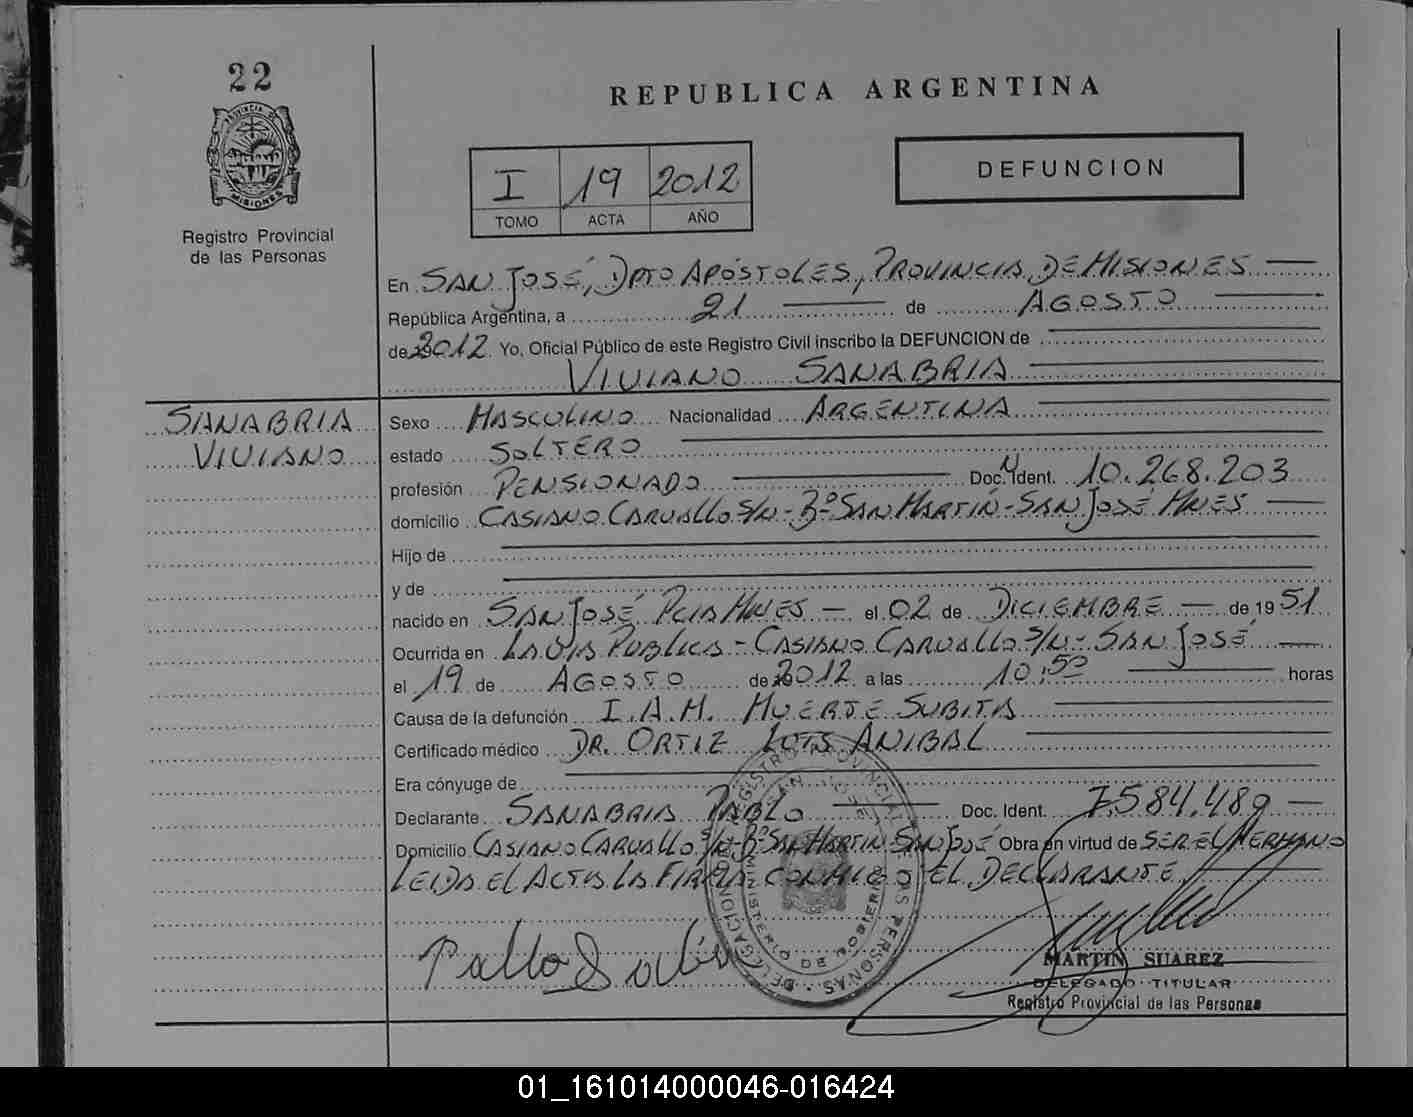 22
PROVINCIA DE
MISIONES
Registro Provincial
de las Personas
REPUBLICA ARGENTINA
I 19 2012
TOMO ACTA AÑO
DEFUNCION
En SAN JOSÉ, DPTO APÓSTOLES, PROVINCIA DE MISIONES
República Argentina, a 21 de AGOSTO
de 2012 Yo, Oficial Público de este Registro Civil inscribo la DEFUNCION de
VIVIANO SANABRIA
SANABRIA
VIVIANO
Sexo MASCULINO Nacionalidad ARGENTINA
estado SOLTERO
profesión PENSIONADO Doc. Ident. 10.268.203
domicilio CASIANO CARVALLO S/N - Bº SAN MARTIN - SAN JOSÉ MNES
Hijo de
y de
nacido en SAN JOSÉ PCIA MNES el 02 de DICIEMBRE de 1951
Ocurrida en LA VIA PUBLICA - CASIANO CARVALLO S/N - SAN JOSÉ
el 19 de AGOSTO de 2012 a las 10:50 horas
Causa de la defunción I.A.M. MUERTE SUBITA
Certificado médico DR. ORTIZ LUIS ANIBAL
Era cónyuge de
Declarante SANABRIA PABLO Doc. Ident. 7.584.489
Domicilio CASIANO CARVALLO S/N - Bº SAN MARTIN - SAN JOSÉ Obra en virtud de SER EL HERMANO
LEIDA EL ACTA LA FIRMA CONMIGO EL DECLARANTE
Pablo
REGISTRO PROVINCIAL DE LAS PERSONAS
DELEGACION
SAN JOSE
MINISTERIO DE GOBIERNO
MARTIN SUAREZ
DELEGADO TITULAR
Registro Provincial de las Personas
01_161014000046-016424